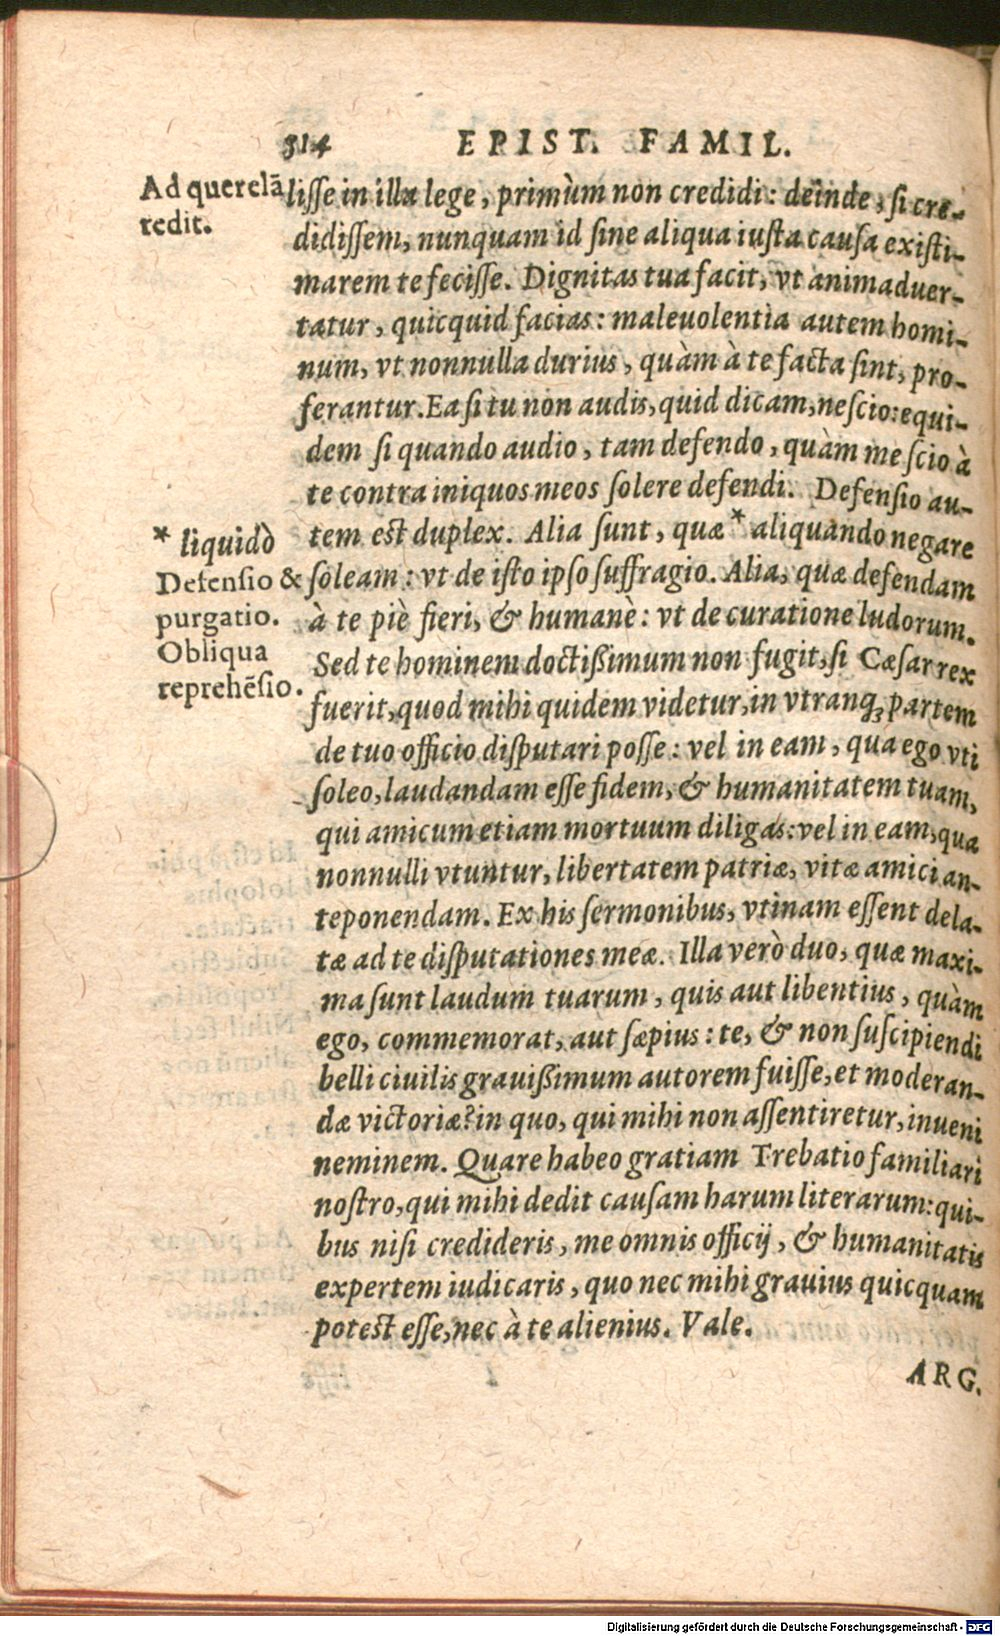 314 EPIST. FAMIL.
Ad querelā
redit.
lisse in illa lege, primùm non credidi: deinde, si cre-
didissem, nunquam id sine aliqua iusta causa existi-
marem te fecisse. Dignitas tua facit, vt animaduer-
tatur, quicquid facias: maleuolentia autem homi-
num, vt nonnulla durius, quàm à te facta sint, pro-
ferantur. Ea si tu non audis, quid dicam, nescio: equi-
dem si quando audio, tam defendo, quàm me scio à
te contra iniquos meos solere defendi. Defensio au-
tem est duplex. Alia sunt, quæ * aliquando negare
soleam: vt de isto ipso suffragio. Alia, quæ defendam
à te piè fieri, & humanè: vt de curatione ludorum.
Sed te hominem doctißimum non fugit, si Cæsar rex
fuerit, quod mihi quidem videtur, in vtranq; partem
de tuo officio disputari posse: vel in eam, qua ego vti
soleo, laudandam esse fidem, & humanitatem tuam,
qui amicum etiam mortuum diligas: vel in eam, qua
nonnulli vtuntur, libertatem patriæ, vitæ amici an-
teponendam. Ex his sermonibus, vtinam essent dela-
tæ ad te disputationes meæ. Illa verò duo, quæ maxi-
ma sunt laudum tuarum, quis aut libentius, quàm
ego, commemorat, aut sæpius: te, & non suscipiendi
belli ciuilis grauißimum autorem fuisse, et moderan-
dæ victoriæ? in quo, qui mihi non assentiretur, inueni
neminem. Quare habeo gratiam Trebatio familiari
nostro, qui mihi dedit causam harum literarum: qui-
bus nisi credideris, me omnis officij, & humanitatis
expertem iudicaris, quo nec mihi grauius quicquam
potest esse, nec à te alienius. Vale.
* liquidò
Defensio &
purgatio.
Obliqua
reprehēsio.
ARG.
Digitalisierung gefördert durch die Deutsche Forschungsgemeinschaft - DFG